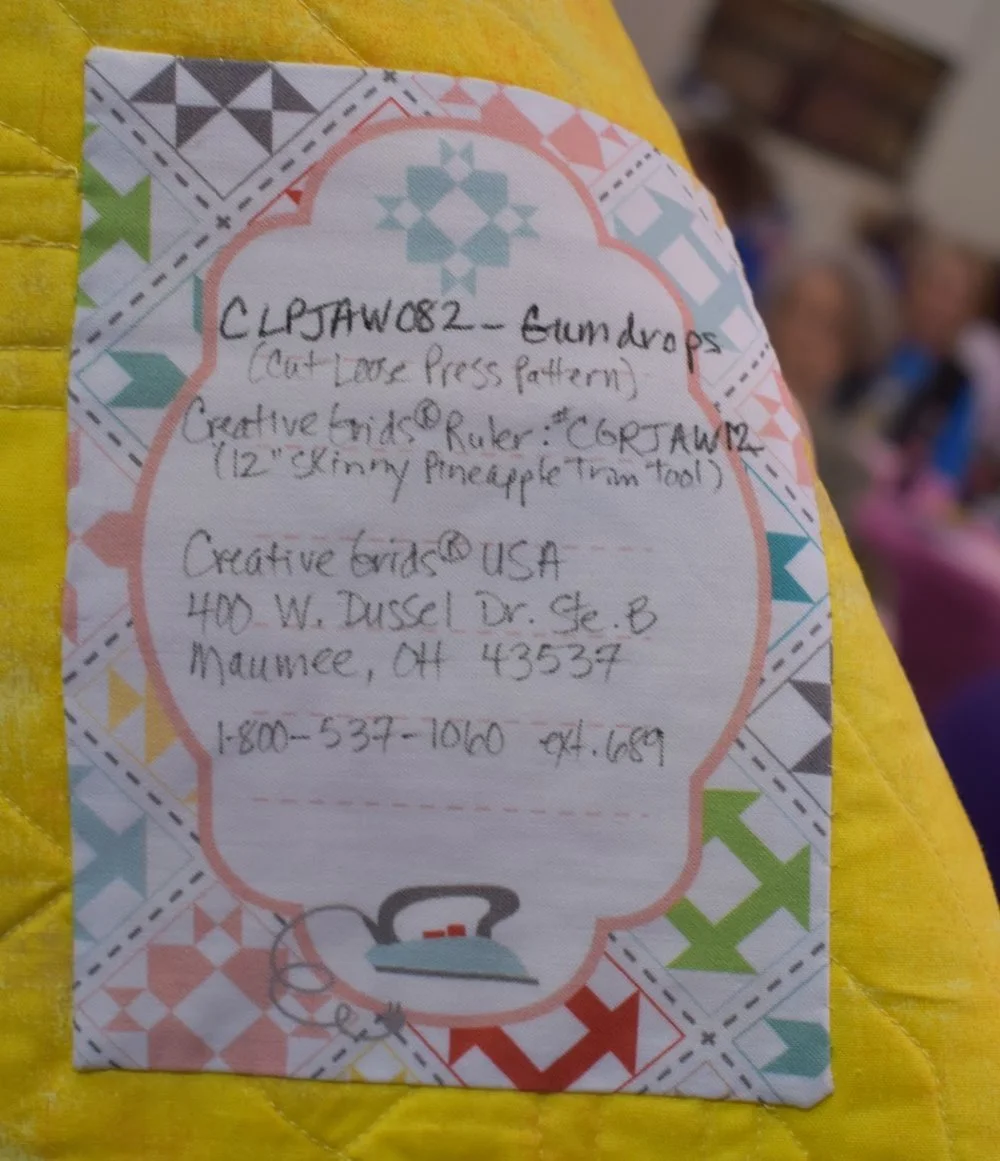 CLPJAW082 - Gumdrops
(Cut Loose Press Pattern)
Creative Grids® Ruler: #CGRJAW12
(12" Skinny Pineapple Trim Tool)
Creative Grids® USA
400 W. Dussel Dr. Ste. B
Maumee, OH 43537
1-800-537-1060 ext. 689